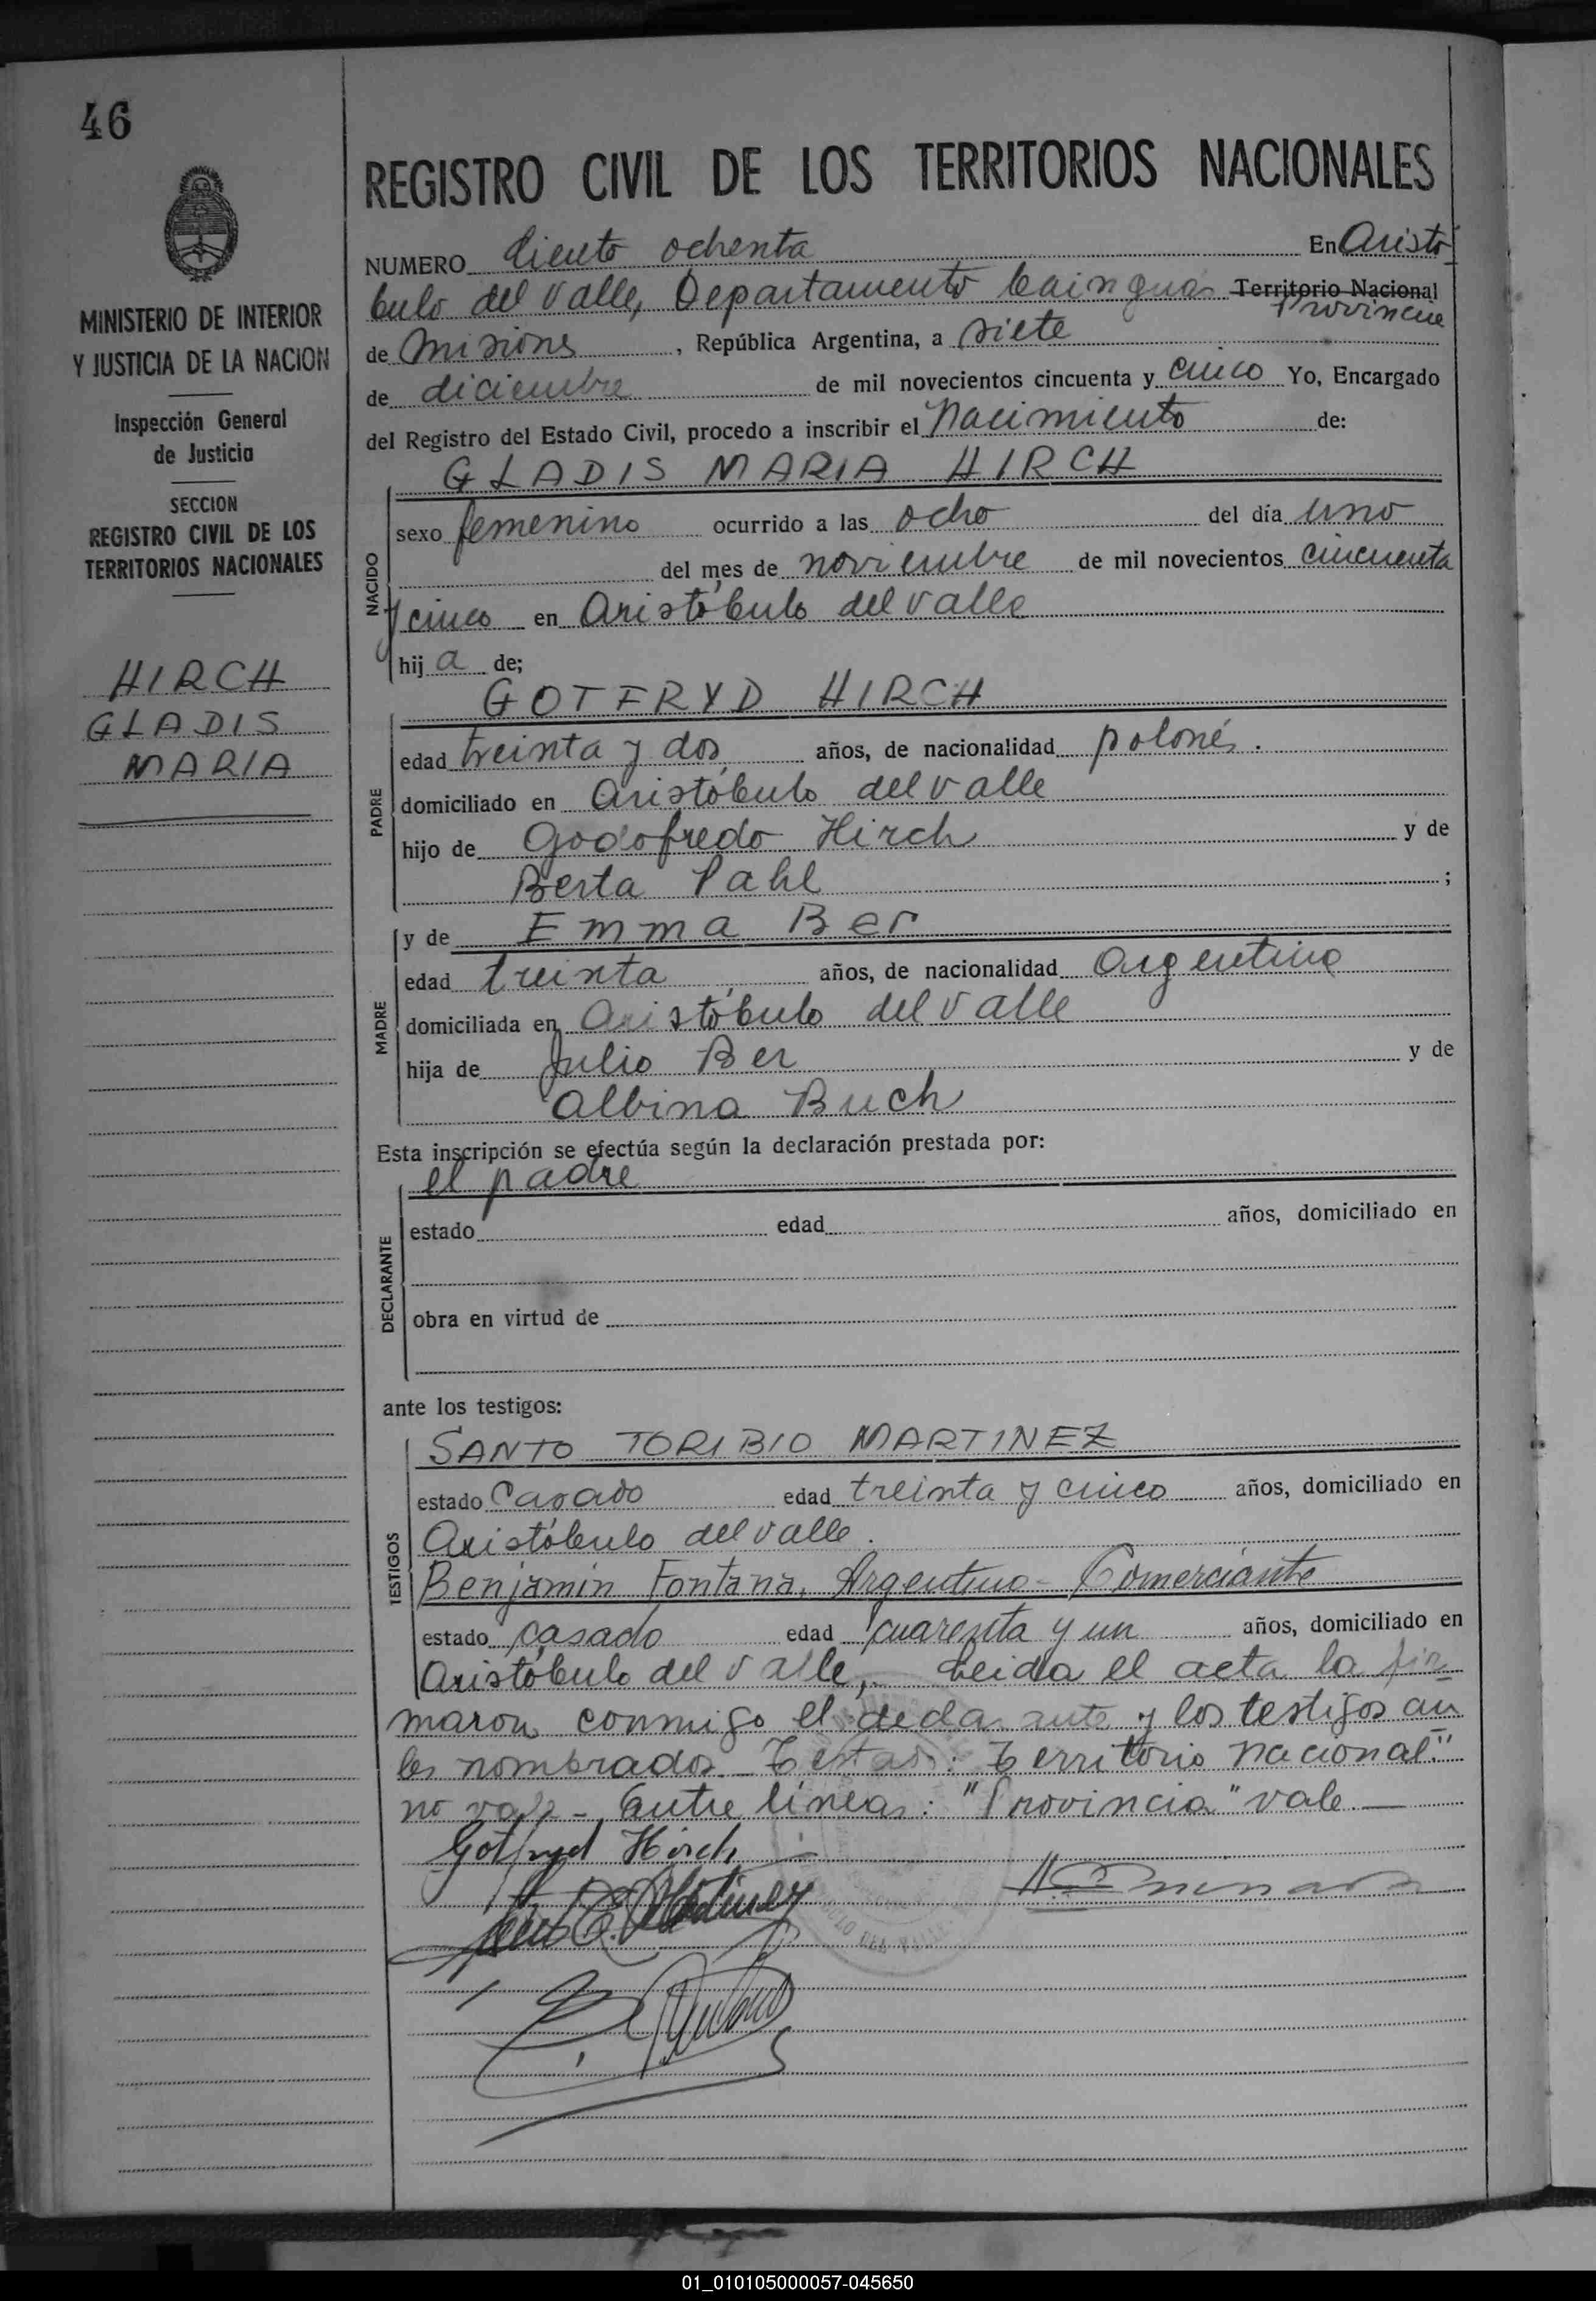 46
MINISTERIO DE INTERIOR
Y JUSTICIA DE LA NACION
Inspección General
de Justicia
SECCION
REGISTRO CIVIL DE LOS
TERRITORIOS NACIONALES
HIRCH
GLADIS
MARIA
REGISTRO CIVIL DE LOS TERRITORIOS NACIONALES
NUMERO Ciento ochenta En Aristó
bulo del Valle, Departamento Cainguás Territorio Nacional
Provincia
de Misiones, República Argentina, a siete
de diciembre de mil novecientos cincuenta y cinco Yo, Encargado
del Registro del Estado Civil, procedo a inscribir el nacimiento de:
GLADIS MARIA HIRCH
NACIDO
sexo femenino ocurrido a las ocho del día uno
del mes de noviembre de mil novecientos cincuenta
y cinco en Aristóbulo del Valle
hij a de;
GOTFRYD HIRCH
PADRE
edad treinta y dos años, de nacionalidad polonés.
domiciliado en Aristóbulo del Valle
hijo de Godofredo Hirch y de
Berta Pahl ;
y de Emma Ber
MADRE
edad treinta años, de nacionalidad Argentina
domiciliada en Aristóbulo del Valle
hija de Julio Ber y de
Albina Buch
Esta inscripción se efectúa según la declaración prestada por:
el padre
DECLARANTE
estado edad años, domiciliado en
obra en virtud de
ante los testigos:
SANTO TORIBIO MARTINEZ
TESTIGOS
estado Casado edad treinta y cinco años, domiciliado en
Aristóbulo del Valle.
Benjamin Fontana, Argentino - Comerciante
estado casado edad cuarenta y un años, domiciliado en
Aristóbulo del Valle, Leida el acta la fir=
maron conmigo el declarante y los testigos an
tes nombrados. Testado: Territorio nacional"
no vale - Entre líneas: "Provincia" vale.—
Gotfryd Hirch
01_010105000057-045650